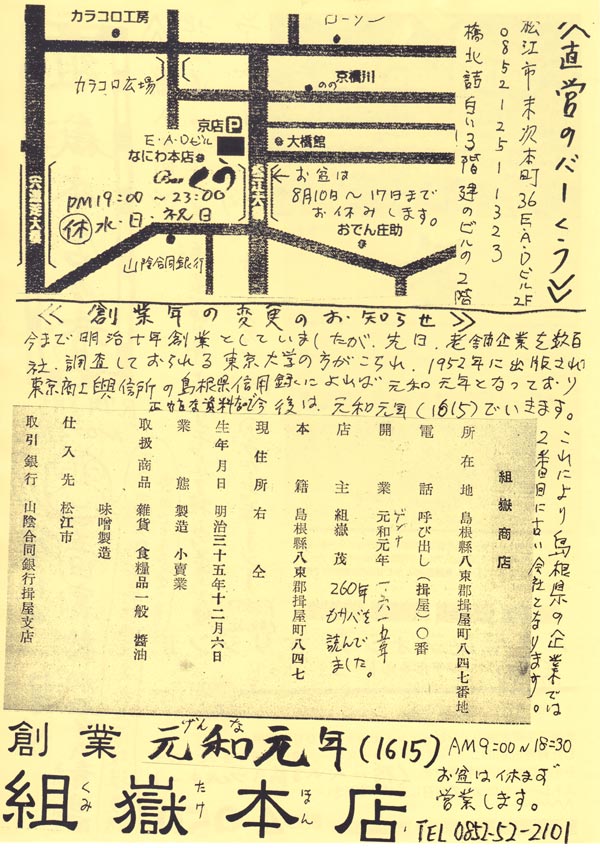 カラコロ工房
ローソン
カラコロ広場
京橋川
のの
京店 P
E・A・Dビル
大橋館
なにわ本店
Bar くう
PM19:00～23:00
休 水・日・祝日
宍道湖大橋
松江大橋
←お盆は
8月10日～17日まで
お休みします。
おでん庄助
山陰合同銀行
≪直営のバーくう≫
松江市末次本町36 E.A.Dビル2F
0852-25-1323
橋北詰白い3階建のビルの2階
≪創業年の変更のお知らせ≫
今まで明治十年創業としていましたが、先日、老舗企業を数百
社、調査しておられる東京大学の方がこられ、1952年に出版され
東京商工興信所の島根県信用録によれば元和元年となっており
今後は、元和元年(1615)でいきます。
これにより島根県の企業では
2番目に古い会社となります。
組嶽商店
所在地 島根縣八束郡揖屋町八四七番地
電話 呼び出し(揖屋)〇番
開業 元和元年 一、六一五年
ゲンナ
店主 組嶽 茂
260年
もサバを
読んで
ました。
本籍 島根縣八束郡揖屋町八四七
現住所 右仝
生年月日 明治三十五年十二月六日
業態 製造 小賣業
取扱商品 雜貨 食糧品一般 醬油
味噌製造
仕入先 松江市
取引銀行 山陰合同銀行揖屋支店
創業 元和元年(1615)
げんな
AM9:00～18:30
お盆は休まず
営業します。
組嶽本店
くみ たけ ほん てん
TEL 0852-52-2101